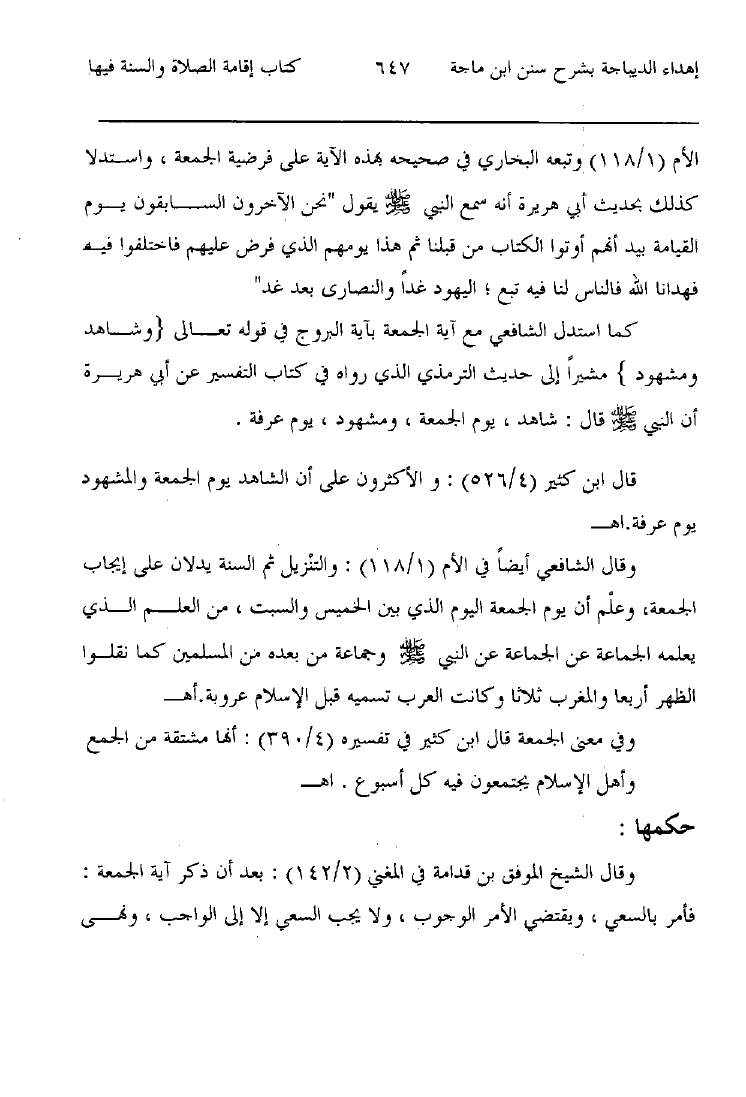 إهداء الديباجة بشرح سنن ابن ماجة ٦٤٧ كتاب إقامة الصلاة والسنة فيها
الأم (١١٨/١) وتبعه البخاري في صحيحه بهذه الآية على فرضية الجمعة ، واستدلا
كذلك بحديث أبي هريرة أنه سمع النبي ﷺ يقول "نحن الآخرون السابقون يوم
القيامة بيد أنهم أوتوا الكتاب من قبلنا ثم هذا يومهم الذي فرض عليهم فاختلفوا فيه
فهدانا الله فالناس لنا فيه تبع ؛ اليهود غداً والنصارى بعد غد"
كما استدل الشافعي مع آية الجمعة بآية البروج في قوله تعالى {وشاهد
ومشهود } مشيراً إلى حديث الترمذي الذي رواه في كتاب التفسير عن أبي هريرة
أن النبي ﷺ قال : شاهد ، يوم الجمعة ، ومشهود ، يوم عرفة .
قال ابن كثير (٥٢٦/٤) : و الأكثرون على أن الشاهد يوم الجمعة والمشهود
يوم عرفة.اهـ
وقال الشافعي أيضاً في الأم (١١٨/١) : والتنْزيل ثم السنة يدلان على إيجاب
الجمعة، وعلْم أن يوم الجمعة اليوم الذي بين الخميس والسبت ، من العلم الذي
يعلمه الجماعة عن الجماعة عن النبي ﷺ وجماعة من بعده من المسلمين كما نقلوا
الظهر أربعا والمغرب ثلاثا وكانت العرب تسميه قبل الإسلام عروبة.أهـ
وفي معنى الجمعة قال ابن كثير في تفسيره (٣٩٠/٤) : أنها مشتقة من الجمع
وأهل الإسلام يجتمعون فيه كل أسبوع . اهـ
حكمها :
وقال الشيخ الموفق بن قدامة في المغني (١٤٢/٢) : بعد أن ذكر آية الجمعة :
فأمر بالسعي ، ويقتضي الأمر الوجوب ، ولا يجب السعي إلا إلى الواجب ، ونهى